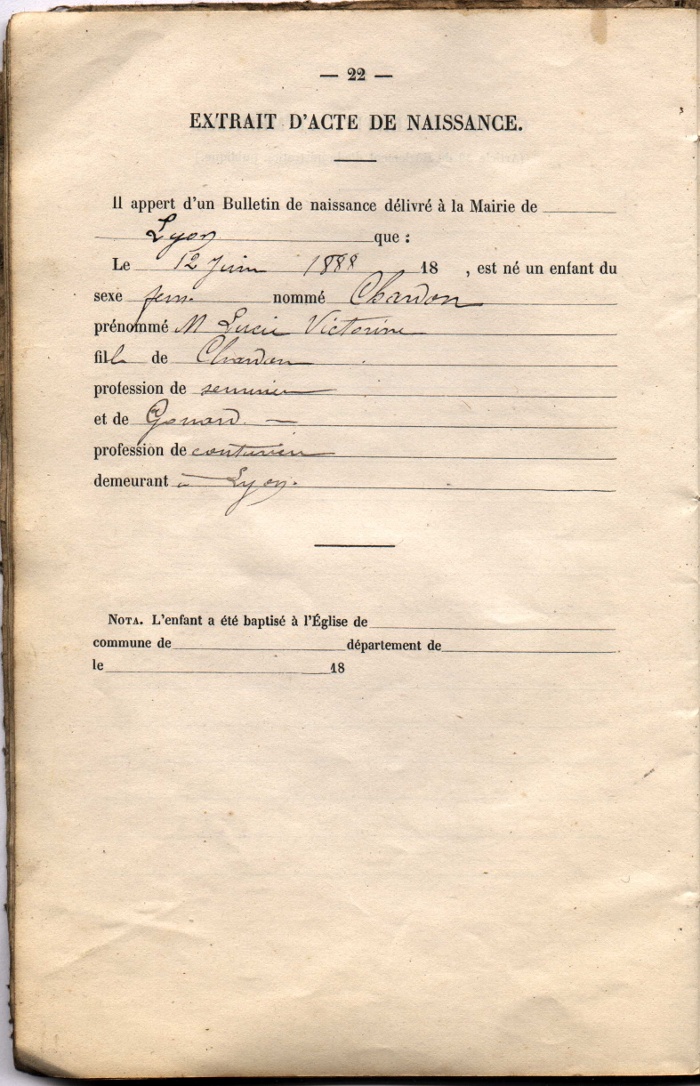 — 22 —
EXTRAIT D'ACTE DE NAISSANCE.
Il appert d'un Bulletin de naissance délivré à la Mairie de
Lyon que :
Le 12 Juin 1888 18 , est né un enfant du
sexe fem. nommé Chardon
prénommé M Lucie Victorine
fille de Chardon
profession de
et de Gonard
profession de couturière
demeurant à Lyon.
NOTA. L'enfant a été baptisé à l'Église de
commune de département de
le 18